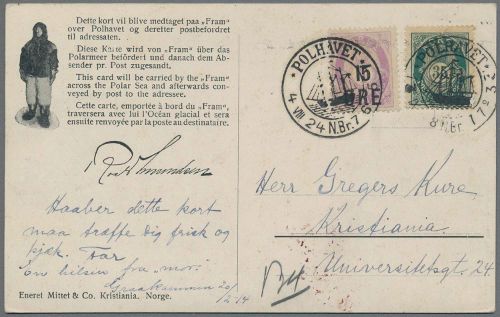 Dette kort vil blive medtaget paa „Fram“
over Polhavet og deretter postbefordret
til adressaten.
Diese Karte wird von "Fram" über das
Polarmeer befördert und danach dem Ab-
sender pr. Post zugesandt.
This card will be carried by the „Fram“
across the Polar Sea and afterwards con-
veyed by post to the addressee.
Cette carte, emportée à bord du „Fram“,
traversera avec lui l'Océan glacial et sera
ensuite renvoyée par la poste au destinataire.
POLHAVET
15
ØRE
4 VIII 24 N.Br. 76
POLHAVET
N.Br. 1723
Roald Amundsen
Haaber dette kort
maa træffe dig frisk og
kjæk. Far
En hilsen fra „mor"
20/2-14
Herr Gregers Kure
Kristiania
Universitetsgt. 24
Eneret Mittet & Co. Kristiania. Norge.